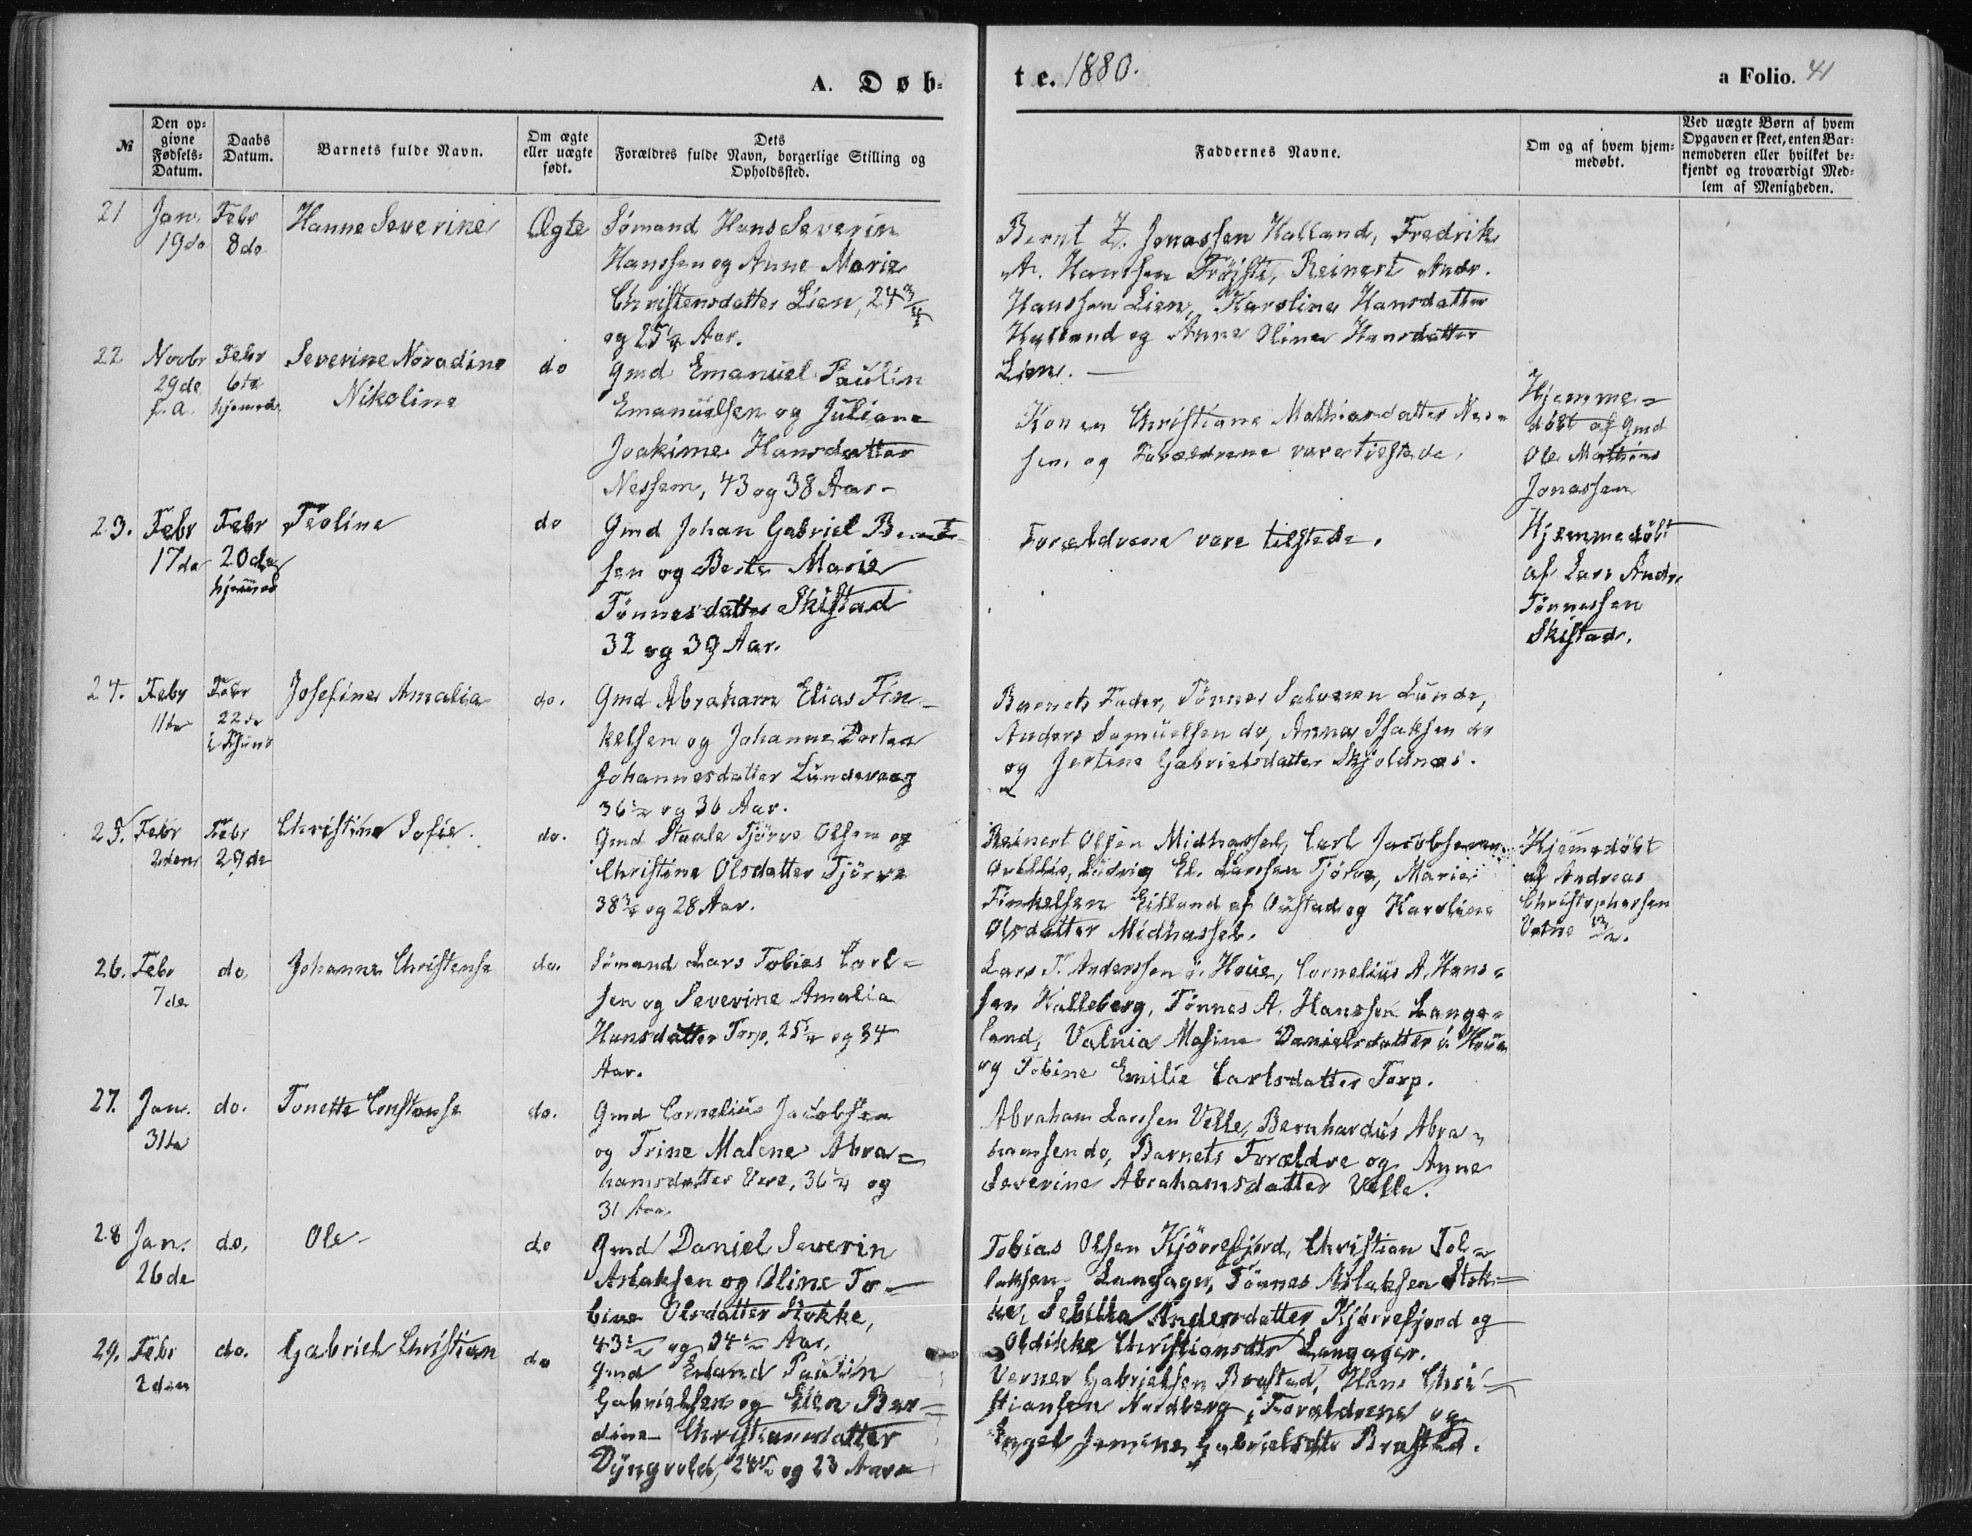 A. Døb=
te. 1880.
a Folio. 41
№
Den op=
givne
Fødsels=
Datum.
Daabs
Datum.
Barnets fulde Navn.
Om ægte
eller uægte
født.
Dets
Forældres fulde Navn, borgerlige Stilling og
Opholdssted.
Faddernes Navne.
Om og af hvem hjem=
medøbt.
Ved uægte Børn af hvem
Opgaven er skeet, enten Bar=
nemoderen eller hvilket be=
kjendt og troværdigt Med=
lem af Menigheden.
21
Jan.
19de
Febr
8de
Hanne Severine
Ægte
Sømand Hans Severin
Hanssen og Anne Marie
Christensdatter Lien, 24 3/4
og 25 1/4 Aar.
Bernt Z. Jonassen Halland, Fredrik
A. Hanssen Frøiste, Reinert Andr.
Hanssen Lien, Karoline Hansdatter
Halland og Anne Oline Hansdatter
Lien.
22
Novbr
29de
f. a.
Febr
6te
hjemmed
Severine Noradine
Nikoline
do
Gmd Emanuel Paulin
Emanuelsen og Juliane
Joakime Hansdatter
Nessem, 43 og 38 Aar
Konen Christiane Mathiasdatter Nes=
sem og Forældrene vare tilstede.
Hjemme=
døbt af Gmd
Ole Mathias
Jonassen
23.
Febr
17de
Febr
20de
hjemmed
Teoline
do
Gmd Johan Gabriel Bernt
sen og Berte Marie
Tønnesdatter Skistad
32 og 39 Aar.
Forældrene vare tilstede.
Hjemmedøbt
af Lars Andr.
Tønnessen
Skistad.
24.
Febr
11te
Febr
22de
Josefine Amalia
do.
Gmd Abraham Elias Fin=
kelsen og Johanne Dortea
Johannesdatter Lundevaag
36 1/2 og 36 Aar.
Barnets Fader, Tønnes Salvesen Lunde,
Anders Samuelsen do, Annas Isaksen do
og Jertine Gabrielsdatter Skjoldnæs.
25.
Febr
2den
Febr
29de
Christine Sofie.
do.
Gmd Staale Tjørve Olsen og
Christine Olsdatter Tjörve
38 3/4 og 28 Aar.
Reinert Olsen Midhassel, Carl Jacobsen
Ludvig El. Larssen Tjörve, Marie
Finkelsen Eitland af Oustad og Karoline
Olsdatter Midhassel.
Hjemmedøbt
af Andreas
Christophersen
Vatne
26.
Febr
7de
do.
Johanne Christense
do.
Sømand Lars Tobias Carl=
sen og Severine Amalia
Hansdatter Torp, 25 1/4 og 34
Aar.
Lars T. Anderssen ö. Houe, Cornelius A. Hans=
sen Kalleberg, Tønnes A. Hanssen Lange=
land, Valnia Mosine Danielsdatter ö. Houe
og Tobine Emilie Carlsdatter Torp.
27.
Jan.
31te
do.
Tonette Constanse
do.
Gmd Cornelius Jacobsen
og Trine Malene Abra=
hamsdatter Vere, 36 1/4 og
31 Aar.
Abraham Larssen Velle, Bernhardus Abra=
hamsen do, Barnets Forældre og Anne
Severine Abrahamsdatter Velle.
28
Jan.
26de
do.
Ole
do
Gmd Daniel Severin
Aslaksen og Oline To=
bine Olsdatter Stokke,
43 1/2 og 34 1/2 Aar.
Tobias Olsen Kjörrefjord, Christian Tol=
laksen Langager, Tønnes Aslaksen Stok=
ke, Sebilla Andersdatter Kjörrefjord og
Oldikke Christiansdtr Langager.
29.
Febr
2den
do.
Gabriel Christian
do
Gmd Erland Paulin
Gabrielsen og Elen Ber=
dine Christiansdatter
Dyngvold, 24 1/2 og 23 Aar
Verner Gabrielsen Brastad, Hans Chri=
stiansen Nordberg, Forældrene og
Engel Jensine Gabrielsdtr Brastad.